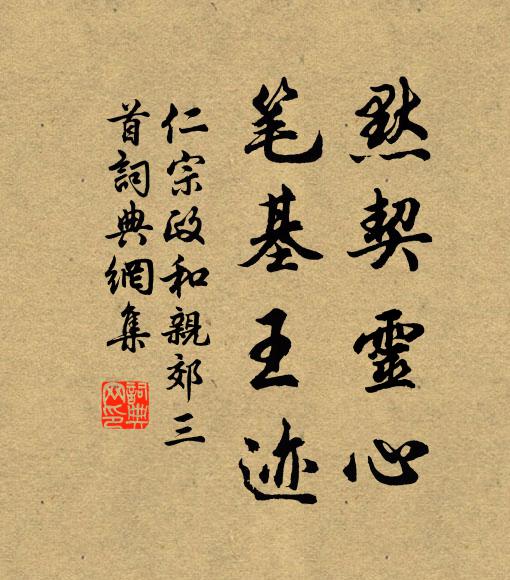 默契靈心
笔基王迹
仁宗政和親郊三
首詞典網集
詞典网印